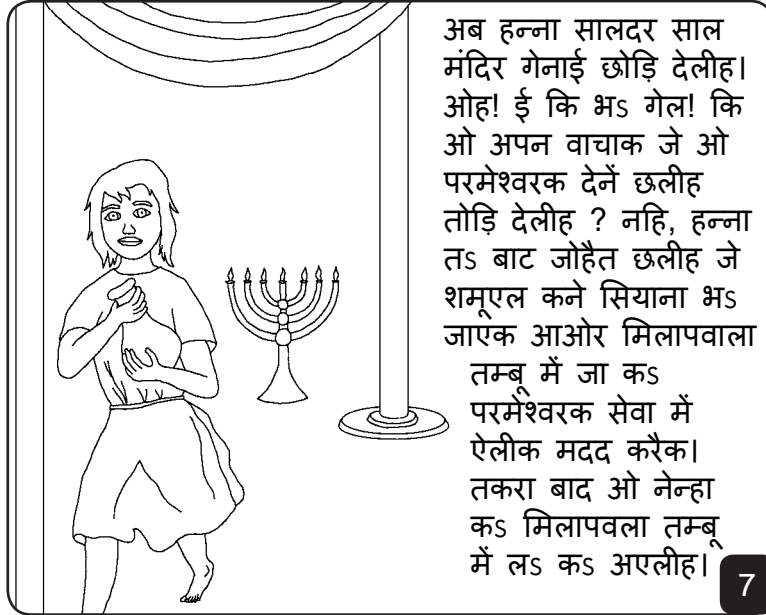 अब हन्ना सालदर साल
मंदिर गेनाई छोड़ि देलीह।
ओह! ई कि भऽ गेल! कि
ओ अपन वाचाक जे ओ
परमेश्वरक देनें छलीह
तोड़ि देलीह ? नहि, हन्ना
तऽ बाट जोहैत छलीह जे
शमूएल कने सियाना भऽ
जाएक आओर मिलापवाला
तम्बू में जा कऽ
परमेश्वरक सेवा में
ऐलीक मदद करैक।
तकरा बाद ओ नेन्हा
कऽ मिलापवला तम्बू
में लऽ कऽ अएलीह।
7